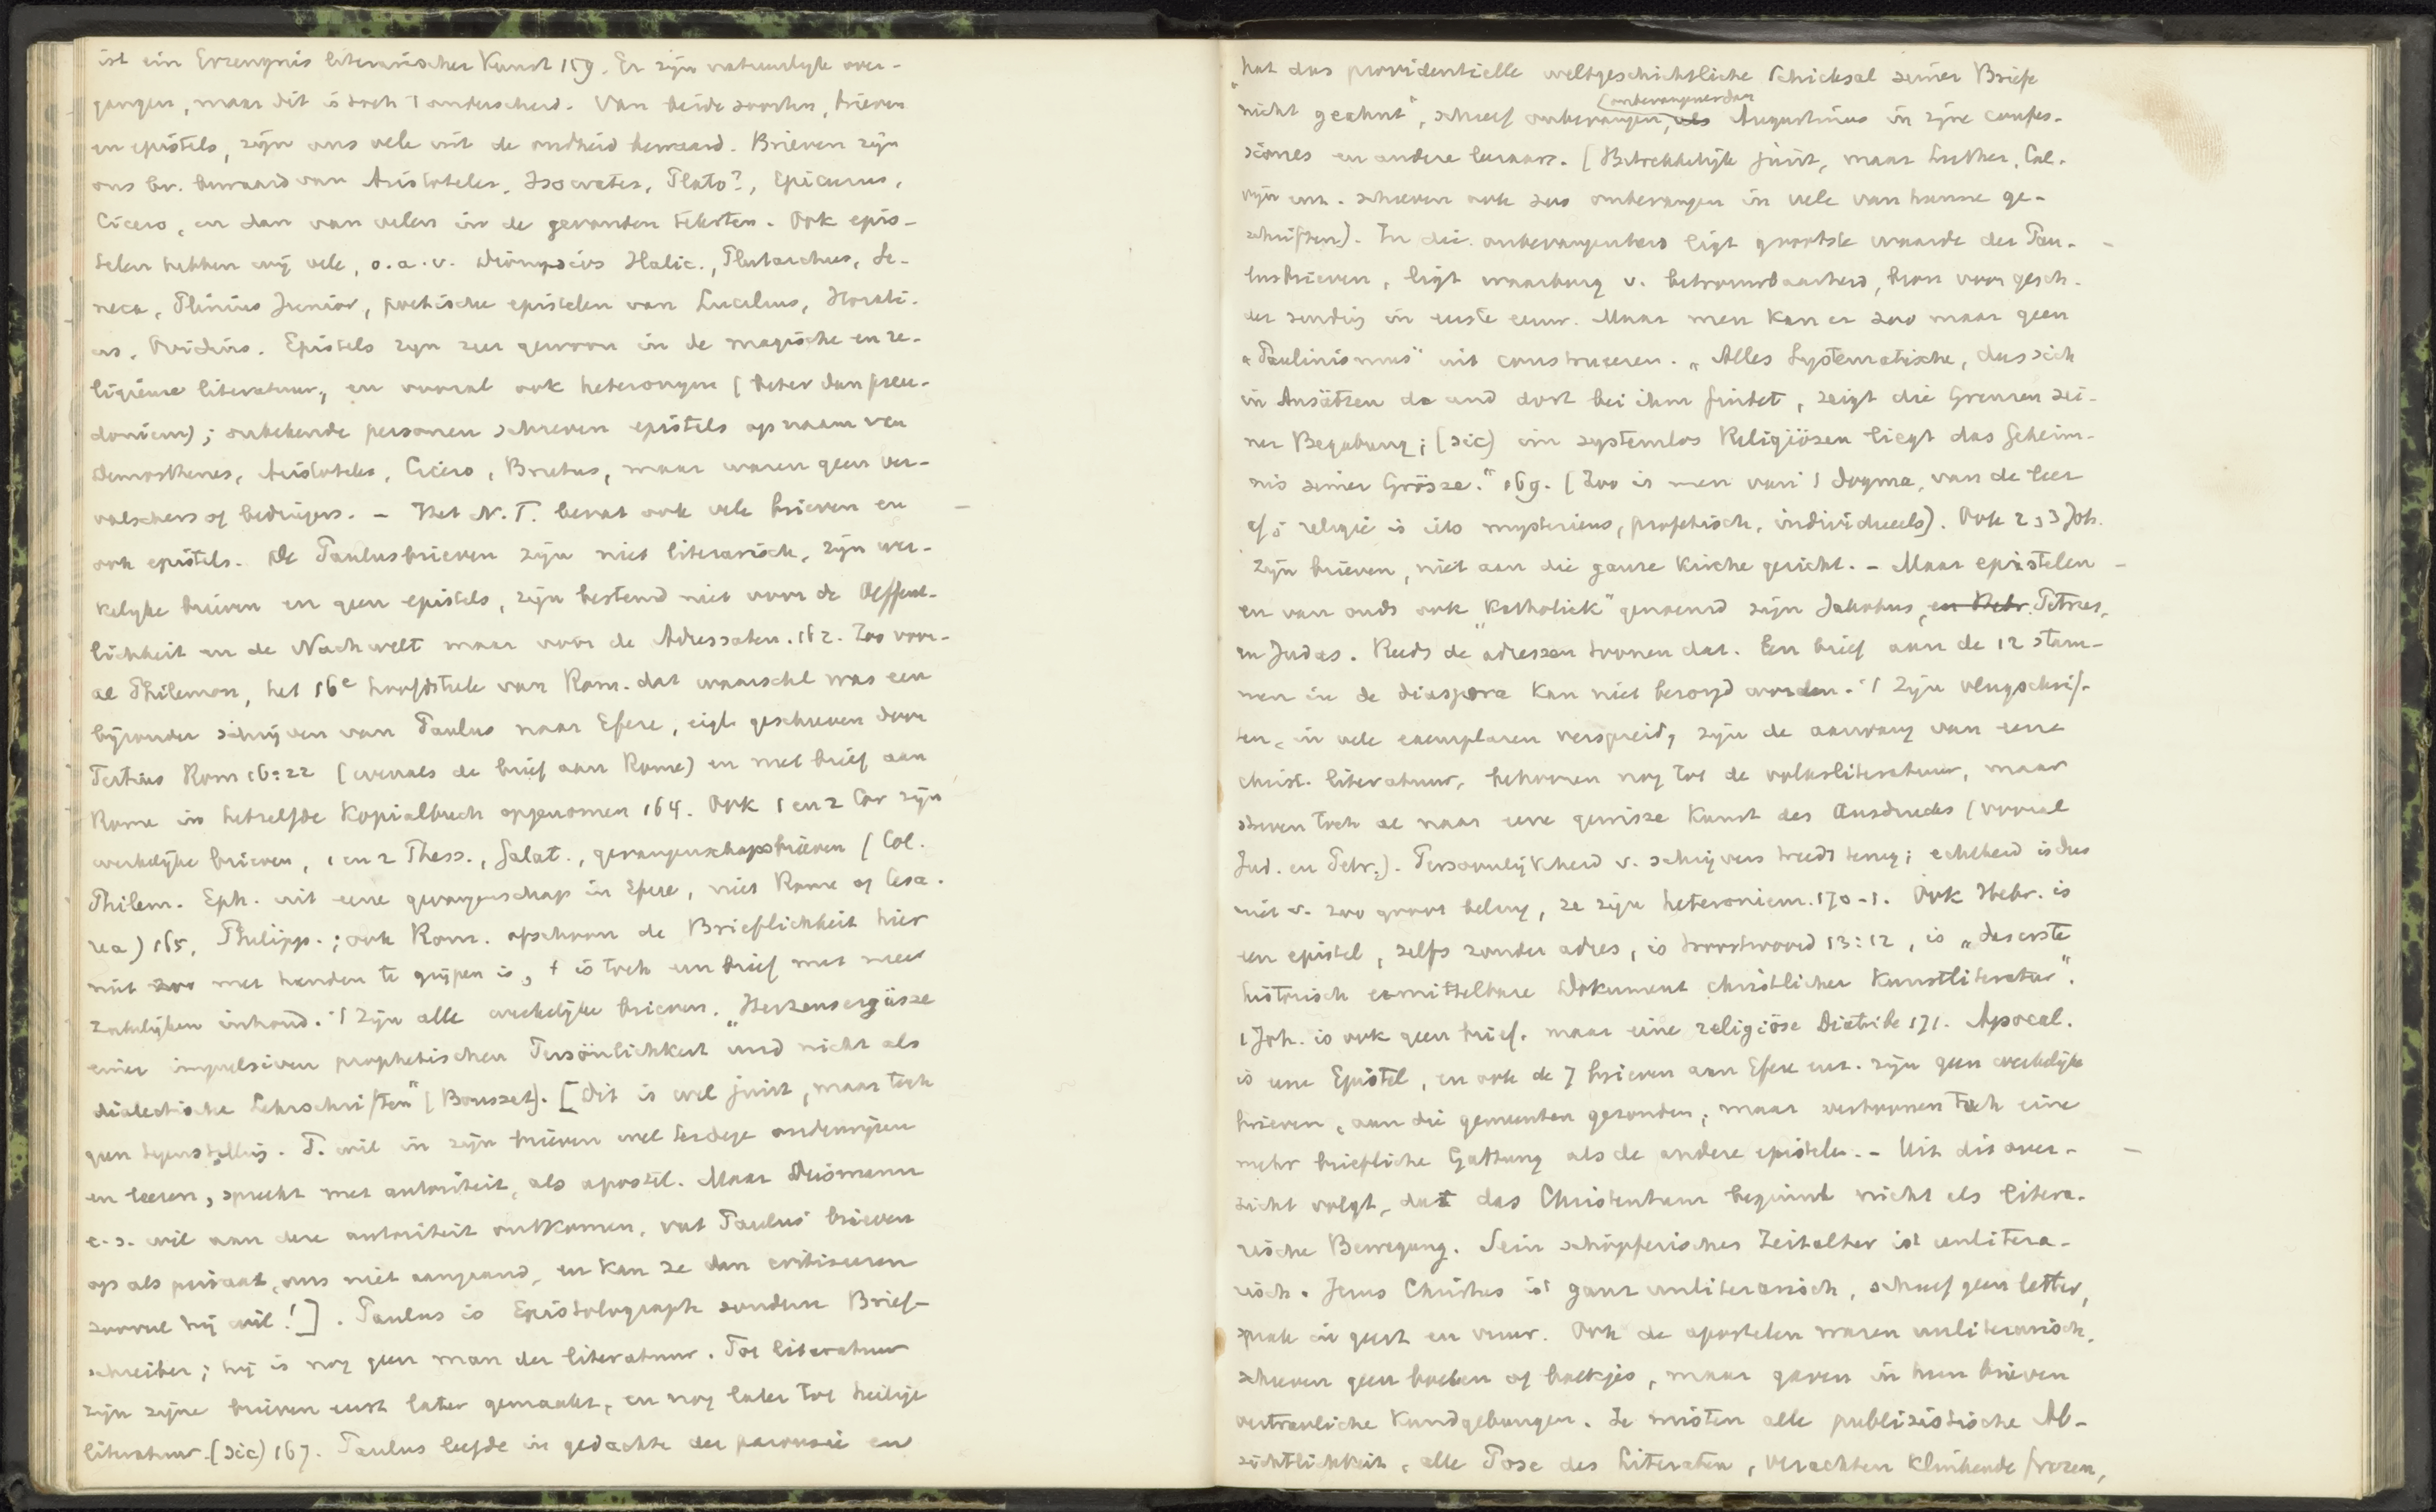 ist ein Erzeugnis literarischer Kunst 159. Er zijn natuurlyk over-
gangen, maar dit is toch 't onderscheid. Van beide soorten, brieven
en epistels, zijn ons vele uit de oudheid bewaard. Brieven zijn
ons bv. bewaard van Aristoteles, Isocrates, Plato?, Epicurus,
Cicero, en dan van velen in de gevonden teksten. Ook epis-
telen hebben wij vele, o.a. v. Dionysius Halic., Plutarchus, Se-
neca, Plinius Junior, poetische epistelen van Lucilius, Horati-
us, Ovidius. Epistels zyn zeer gewoon in de magische en re-
ligieuse literatuur, en vooral ook heteronyme (beter dan pseu-
doniem); onbekende personen schreven epistels op naam van
Demosthenes, Aristoteles, Cicero, Brutus, maar waren geen ver-
valschers of bedriegers. – Het N.T. bevat ook vele brieven en
ook epistels. De Paulusbrieven zijn niet literarisch, zijn wer-
kelyke brieven en geen epistels, zijn bestemd niet voor de Oeffent-
lichkeit en de Nachwelt maar voor de Adressaten. 162. Zoo voor-
al Philemon, het 16e hoofdstuk van Rom. dat waarschl was een
byzonder schrijven van Paulus naar Efeze, eigl. geschreven door
Tertius Rom 16:22 (evenals de brief aan Rome) en met brief aan
Rome in hetzelfde Kopialbuch opgenomen 164. Ook 1 en 2 Cor zijn
werkelyke brieven, 1 en 2 Thess., Galat., gevangenschapsbrieven (Col.
Philem. Eph. uit eene gevangenschap in Efeze, niet Rome of Cesa-
rea) 165, Philipp.; ook Rom. ofschoon de Brieflichkeit hier
niet zoo met handen te grijpen is, 't is toch een brief met meer
zakelyken inhoud. 't Zijn alle werkelyke brieven. „Herzensergüsse
einer impulsiven prophetischen Persönlichkeit und nicht als
dialectische Lehrschriften" (Bousset). [Dit is wel juist, maar toch
geen tegenstelling. P. wil in zijn brieven wel terdege onderwijzen
en leeren, spreekt met autoriteit, als apostel. Maar Deissmann
c.s. wil aan deze autoriteit ontkomen, vat Paulus' brieven
op als privaat, ons niet aangaand, en kan ze dan critiseeren
zooveel hij wil!]. Paulus is Epistolograph sondern Brief-
schreiber; hij is nog geen man der literatuur. Tot literatuur
zijn zijne brieven eerst later gemaakt, en nog later tot heilige
literatuur. (sic) 167. Paulus leefde in gedachte der parousie en
„hat das providentielle weltgeschichtliche Schicksal seiner Briefe
nicht geahnt", schreef onbevangen, als Augustinus in zijne confes-
(onbevangener dan
siones en andere leeraars. (Betrekkelijk juist, maar Luther, Cal-
vijn enz. schreven ook zoo onbevangen in vele van hunne ge-
schriften). In die onbevangenheid ligt grootste waarde der Pau-
lusbrieven, ligt waarborg v. betrouwbaarheid, bron voor gesch.
der zending in eerste eeuw. Maar men kan er zoo maar geen
„Paulinismus" uit construeeren. „Alles Systematische, das sich
in Ansätzen da und dort bei ihm findet, zeigt die Grenzen sei-
ner Begabung; (sic) im systemlos Religiösen liegt das Geheim-
nis seiner Grösze." 169. (Zoo is men van 't dogma, van de leer
af; religie is iets mysterieus, profetisch, individueels). Ook 2 3 Joh.
zijn brieven, niet aan die ganze Kirche gericht. – Maar epistelen
en van ouds ook „Katholiek" genoemd zijn Jakobus, en Hebr. Petrus,
en Judas. Reeds de adressen toonen dat. Een brief aan de 12 stam-
men in de diaspora kan niet bezorgd worden. 't Zijn vlugschrif-
ten, in vele exemplaren verspreid, zijn de aanvang van eene
christ. literatuur, behooren nog tot de volksliteratuur, maar
streven toch al naar eene gewisse Kunst des Ausdrucks (vooral
Jud. en Petr.). Persoonlijkheid v. schrijvers treedt terug; echtheid is dus
niet v. zoo groot belang, ze zijn heteroniem. 170-1. Ook Hebr. is
een epistel, zelfs zonder adres, is troostwoord 13:12, is „das erste
historisch ermittelbare Dokument christlicher Kunstliteratur".
1 Joh. is ook geen brief, maar eine religiöse Diatribe 171. Apocal.
is eene Epistel, en ook de 7 brieven aan Efeze enz. zijn geen werkelijke
brieven, aan die gemeenten gezonden; maar vertoonen toch eine
mehr briefliche Gattung als de andere epistelen. – Uit dit over-
zicht volgt, dat das Christentum beginnt nicht als litera-
rische Bewegung. Sein schöpferisches Zeitalter ist unlitera-
risch. Jesus Christus ist ganz unliterarisch, schreef geen letter,
sprak in geest en vuur. Ook de apostelen waren unliterarisch,
schreven geen boeken of boekjes, maar gaven in hun brieven
vertrauliche Kundgebungen. Ze misten alle publizistische Ab-
sichtlichkeit, alle Pose des Literaten, verachten klinkende frazen,